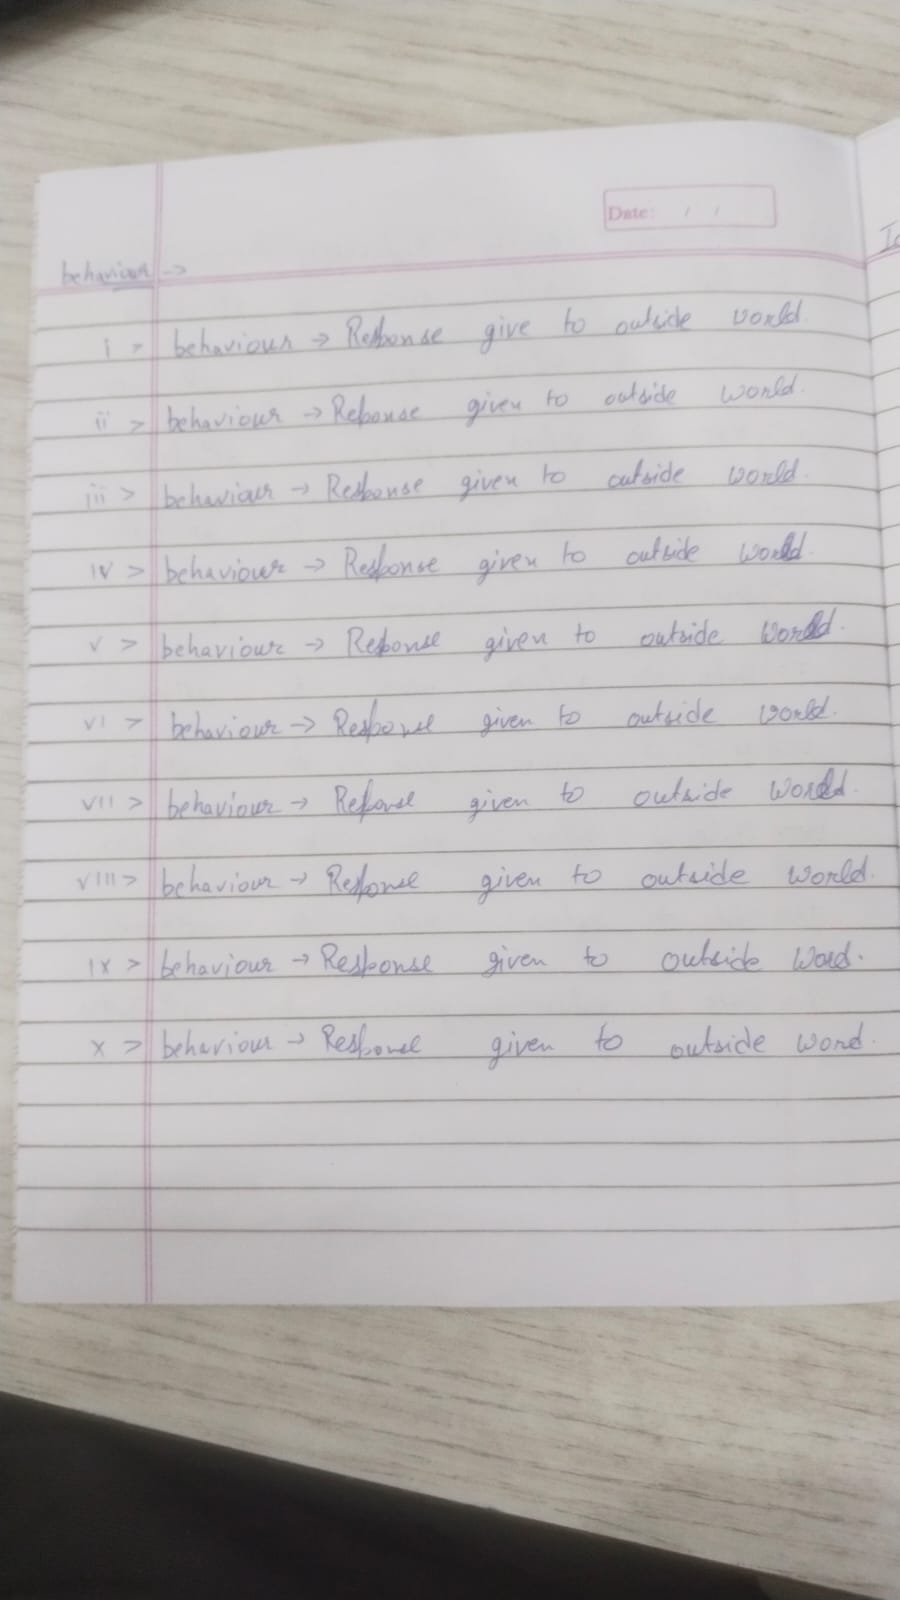 Date: / /
behaviour ->
i > behaviour → Response give to outside world.
ii > behaviour → Reponse given to outside world.
iii > behaviour → Response given to outside world.
iv > behaviour → Response given to outside world.
v > behaviour → Reponse given to outside world.
vi > behaviour → Response given to outside world.
vii > behaviour → Reponse given to outside world.
viii > behaviour → Response given to outside world.
ix > behaviour → Response given to outside word.
x > behaviour → Response given to outside word.